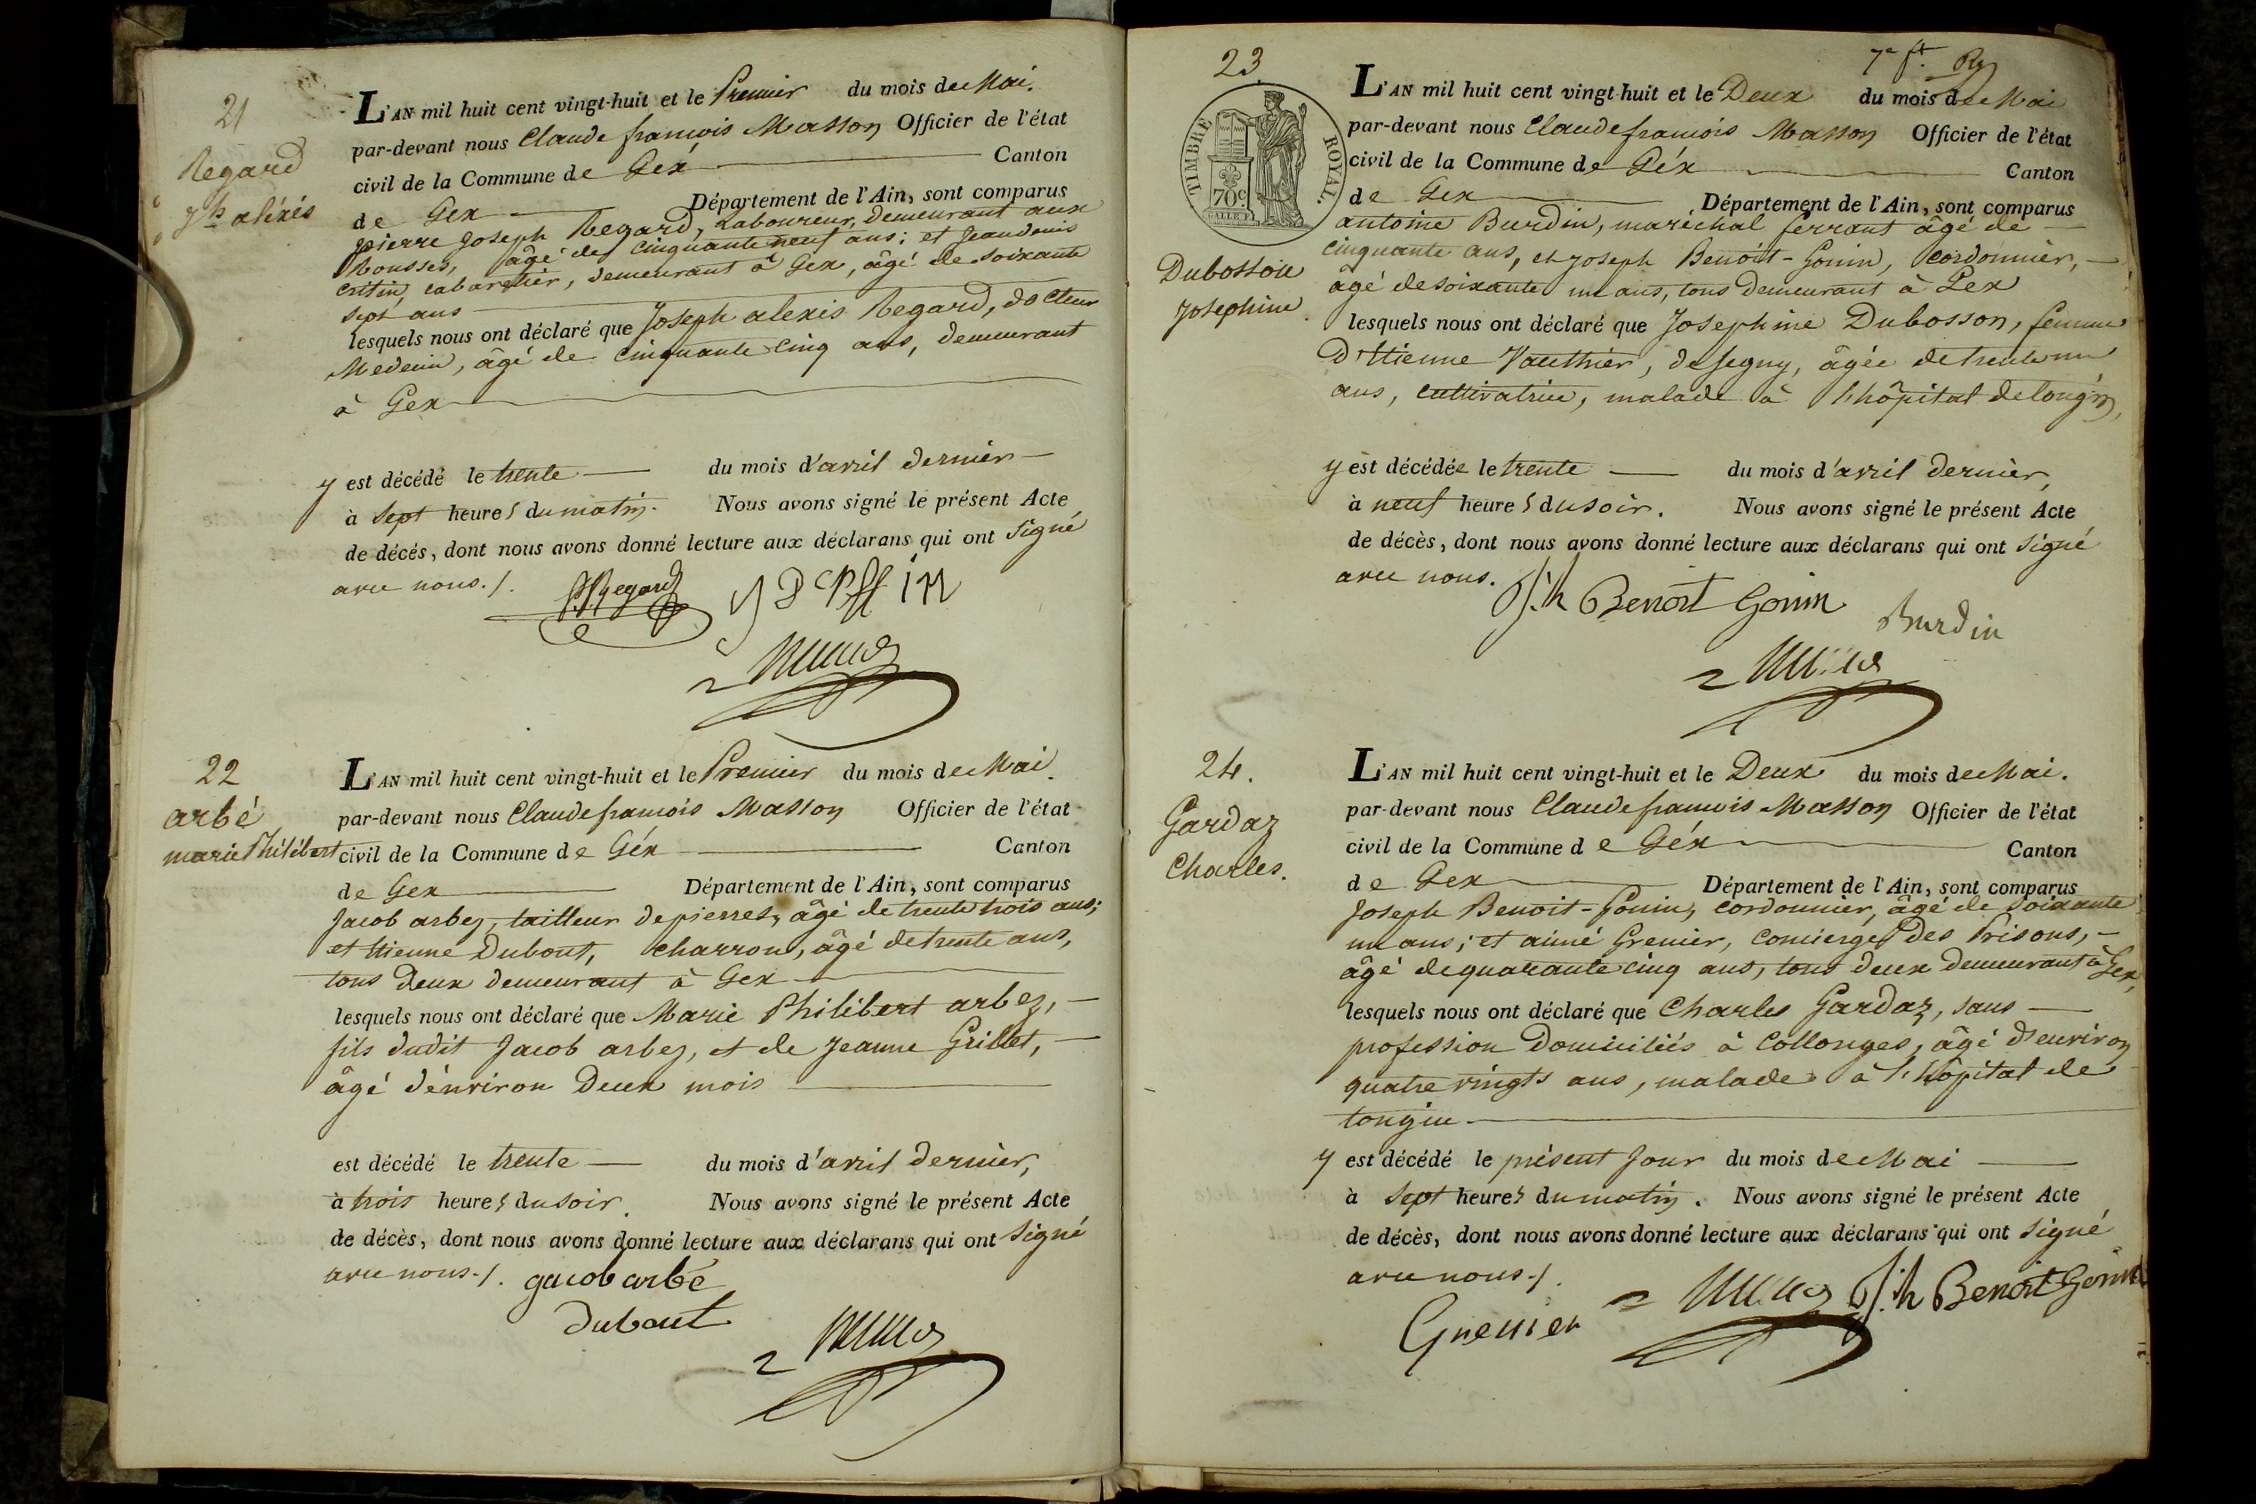 21
Regard
Jh aléxis
L'AN mil huit cent vingt-huit et le Premier du mois de Mai.
par-devant nous Claude françois Masson Officier de l'état
civil de la Commune de Géx Canton
de Gex Département de l'Ain, sont comparus
pierre Joseph Regard, Laboureur, demeurant aux
Rousses, âgé de cinquante neuf ans; et Jean denis
cabaretier, demeurant à Gex, âgé de soixante
sept ans
lesquels nous ont déclaré que Joseph alexis Regard, docteur
Medecin, âgé de cinquante cinq ans, demeurant
à Gex
y est décédé le trente du mois d'avril dernier
à sept heures du matin. Nous avons signé le présent Acte
de décés, dont nous avons donné lecture aux déclarans qui ont signé
avec nous./.
Regard
22
arbé
marie Philibert
L'AN mil huit cent vingt-huit et le Premier du mois de Mai.
par-devant nous Claude françois Masson Officier de l'état
civil de la Commune de Géx Canton
de Gex Département de l'Ain, sont comparus
Jacob arbez, tailleur de pierres, âgé de trente trois ans;
et Etienne Dubout, charron, âgé de trente ans,
tous deux demeurant à Gex
lesquels nous ont déclaré que Marie Philibert arbez,
fils dudit Jacob arbez, et de Jeanne Grillet,
âgé d'environ deux mois
est décédé le trente du mois d'avril dernier,
à trois heures du soir. Nous avons signé le présent Acte
de décès, dont nous avons donné lecture aux déclarans qui ont signé
avec nous./. gacob arbé
dubout
23
7e ft.
TIMBRE ROYAL.
70c.
Dubosson
Josephine.
L'AN mil huit cent vingt-huit et le Deux du mois de Mai
par-devant nous Claude françois Masson Officier de l'état
civil de la Commune de Géx Canton
de Gex Département de l'Ain, sont comparus
antoine Burdin, maréchal ferrant âgé de
cinquante ans, et Joseph Benoit-Gonin, cordonnier,
âgé de soixante un ans, tous demeurant à Gex
lesquels nous ont déclaré que Josephine Dubosson, femme
d'Etienne Vauthier, de Segny, âgée de trente un
ans, cultivatrice, malade à l'hôpital de tougin,
y est décédée le trente du mois d'avril dernier,
à neuf heures du soir. Nous avons signé le présent Acte
de décès, dont nous avons donné lecture aux déclarans qui ont signé
avec nous.
J.h Benoit Gonin
Burdin
24.
Gardaz
Charles.
L'AN mil huit cent vingt-huit et le Deux du mois de Mai.
par-devant nous Claude françois Masson Officier de l'état
civil de la Commune de Géx Canton
de Gex Département de l'Ain, sont comparus
Joseph Benoit-Gonin, cordonnier, âgé de soixante
un ans; et aimé Grenier, concierge des Prisons,
âgé de quarante cinq ans, tous deux demeurant à Gex,
lesquels nous ont déclaré que Charles Gardaz, sans
profession domiciliés à Collonges, âgé d'environ
quatre vingts ans, malade à l'hôpital de
tougin
y est décédé le présent Jour du mois de Mai
à sept heures du matin. Nous avons signé le présent Acte
de décès, dont nous avons donné lecture aux déclarans qui ont signé
avec nous./.
Grenier J.h Benoit Gonin